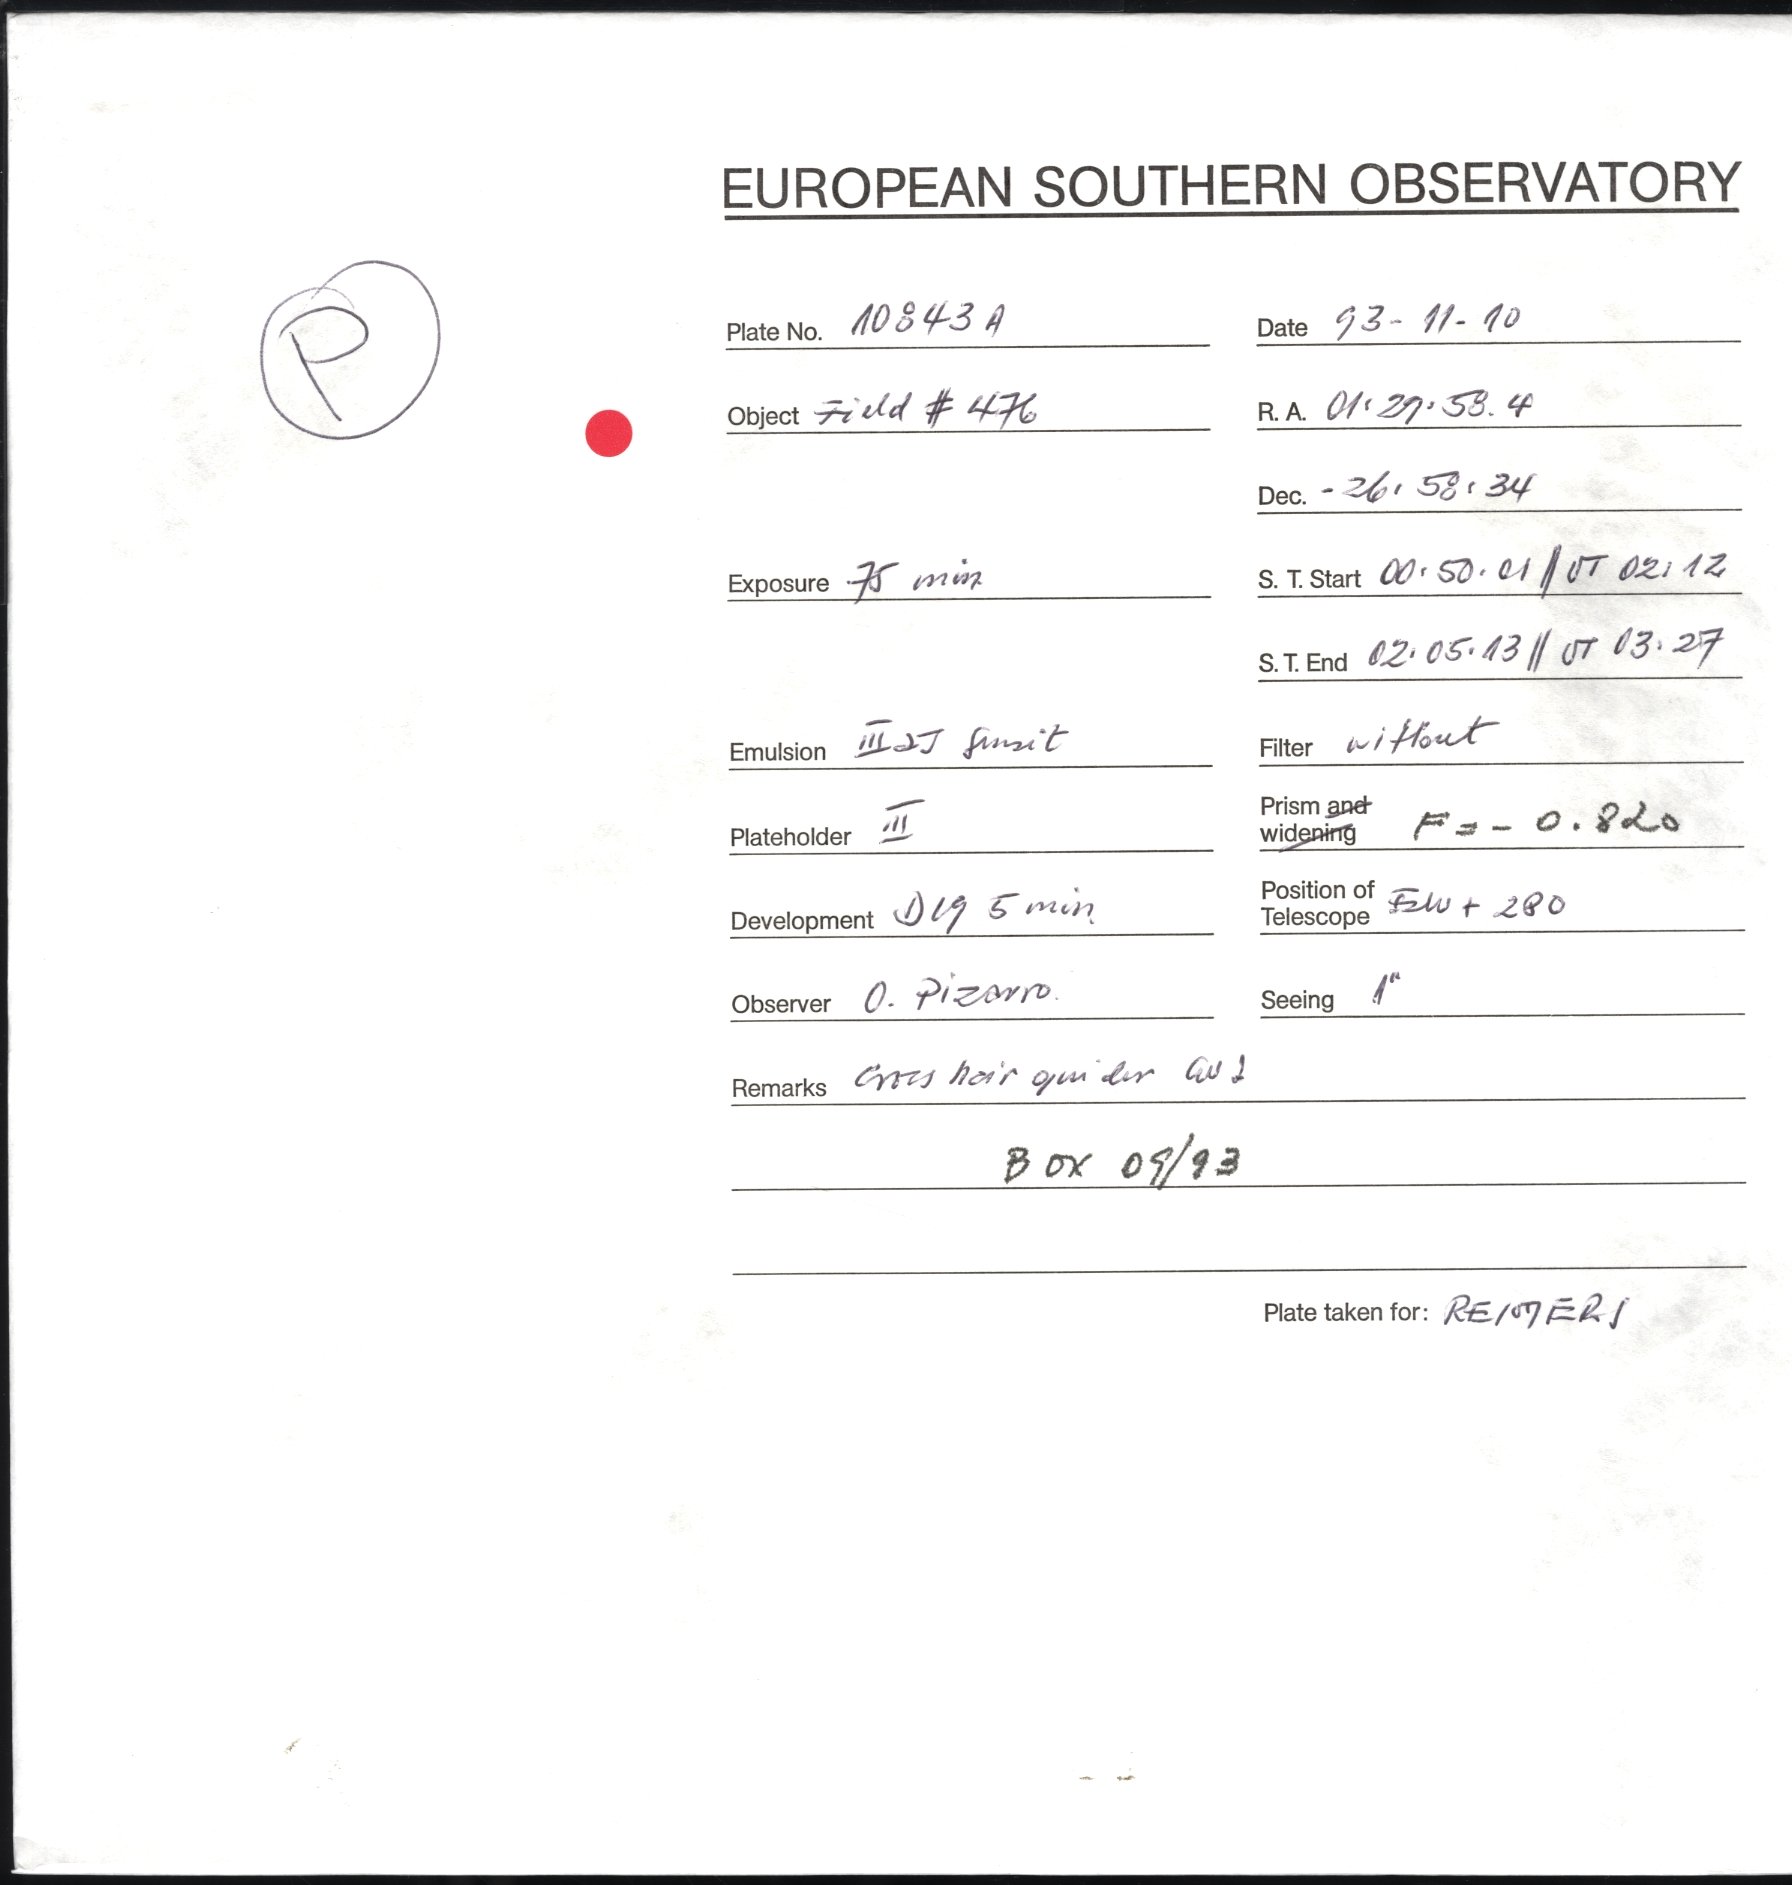 EUROPEAN SOUTHERN OBSERVATORY
P
Plate No. 10843 A
Date 93-11-10
Object Field # 476
R. A. 01:29:58.4
Dec. -26:58:34
Exposure 75 min
S. T. Start 00:50:01 // UT 02:12
S. T. End 02:05:13 // UT 03:27
Emulsion IIIaJ
Filter without
Plateholder III
Prism and widening F = - 0.820
Development D19 5 min
Position of Telescope + 280
Observer O. Pizarro
Seeing 1"
Remarks Cross hair guider
BOX 09/93
Plate taken for: REIMERS